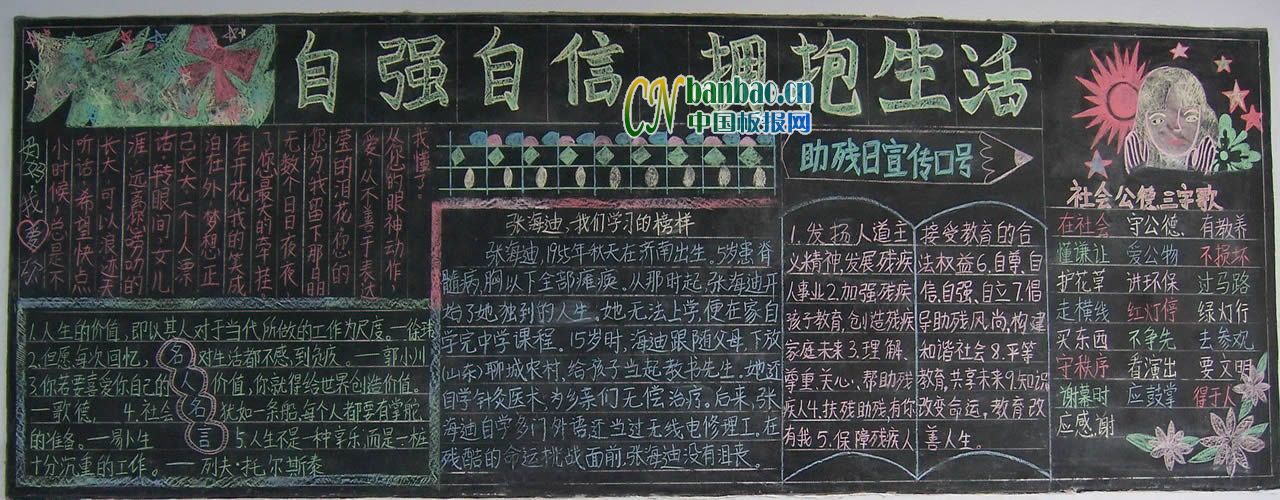 自强自信 拥抱生活
CN banbao.cn
中国板报网
妈妈,我爱你
小时候,总是不
听话,希望快点
长大,可以浪迹天
涯,远离您唠叨的
话,转眼间,女儿
已长大,一个人漂
泊在外,梦想正
在开花,我的笑成
了您最大的牵挂。
无数个日日夜夜
您为我留下那晶
莹的泪花,您的
爱,从不善于表达
从您的眼神动作,
我懂了。
名人名言
1.人生的价值,即以其人对于当代所做的工作为尺度。—徐玮
2.但愿每次回忆,对生活都不感到负疚 ——郭小川
3.你若要喜爱你自己的价值,你就得给世界创造价值。
—歌德、 4.社会犹如一条船,每个人都要有掌舵
的准备。—易卜生 5.人生不是一种享乐,而是一桩
十分沉重的工作。——列夫·托尔斯泰
张海迪,我们学习的榜样
张海迪,1955年秋天在济南出生。5岁患脊
髓病,胸以下全部瘫痪。从那时起,张海迪开
始了她独到的人生。她无法上学,便在家自
学完中学课程。15岁时,海迪跟随父母,下放
(山东)聊城农村,给孩子当起教书先生。她还
自学针灸医术,为乡亲们无偿治疗。后来,张
海迪自学多门外语还当过无线电修理工。在
残酷的命运挑战面前,张海迪没有沮丧。
助残日宣传口号
1.发扬人道主
义精神,发展残疾
人事业2.加强残疾
孩子教育,创造残疾
家庭未来3.理解、
尊重、关心、帮助残
疾人4.扶残助残有你
有我5.保障残疾人
接受教育的合
法权益6.自尊、自
信、自强、自立7.倡
导助残风尚,构建
和谐社会8.平等
教育,共享未来9.知识
改变命运、教育改
善人生。
社会公德三字歌
在社会 守公德、 有教养
懂谦让 爱公物 不损坏
护花草 讲环保 过马路
走横线 红灯停 绿灯行
买东西 不争先 去参观
守秩序 看演出 要文明
谢幕时 应鼓掌 得于人
应感谢